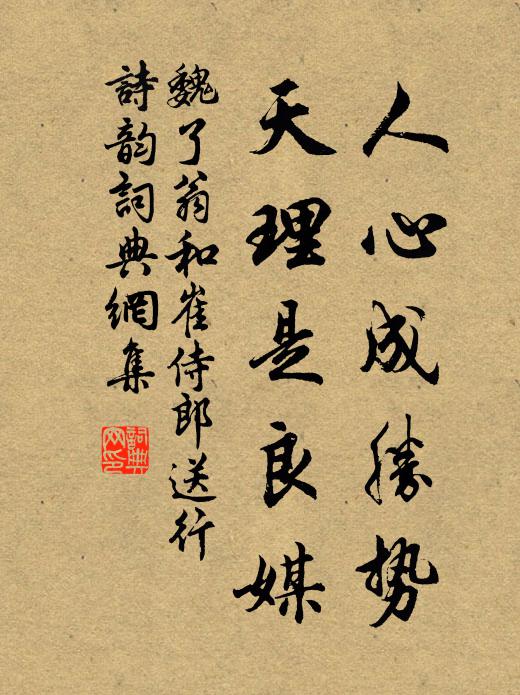 人心成勝势
天理是良媒
魏了翁和崔侍郎送行
詩韵詞典網集
詞典网印